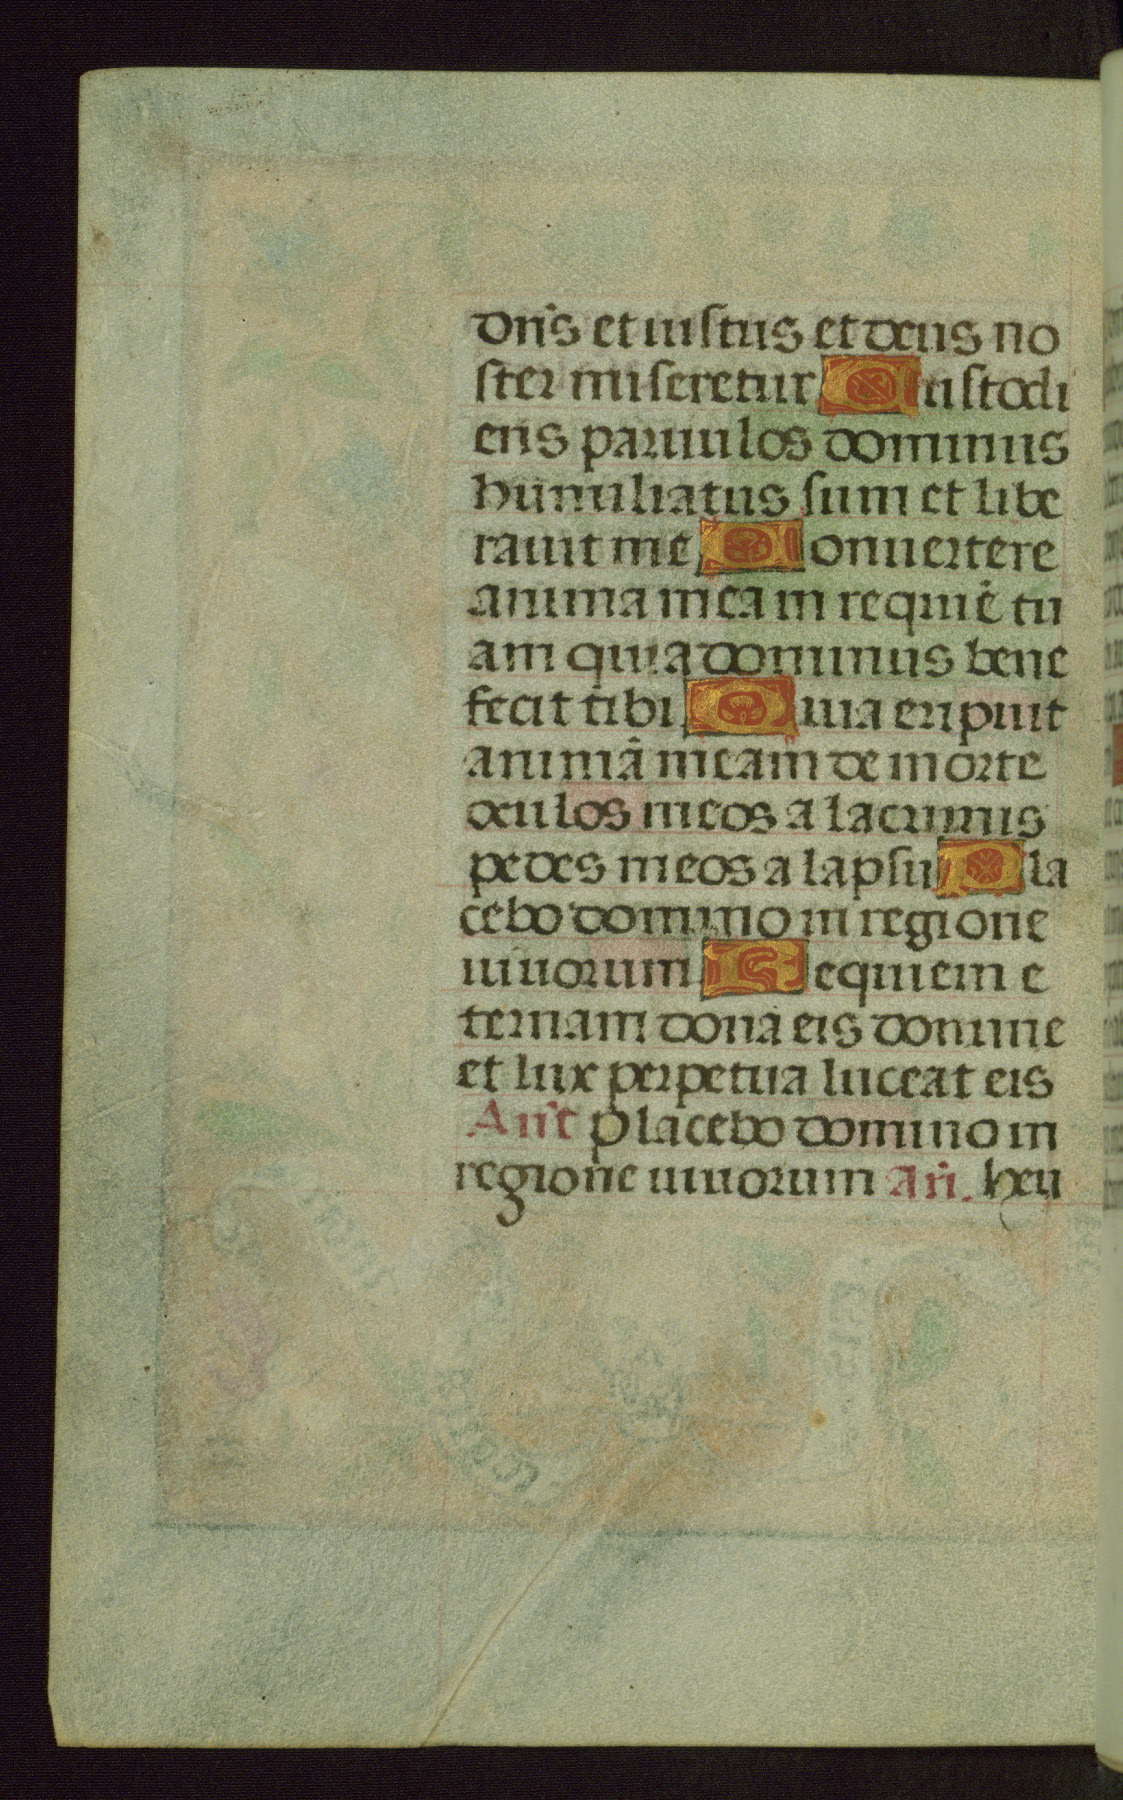 dn̄s et iustus et deus no
ster miseretur Custodi
ens paruulos dominus
humiliatus sum et libe
rauit me Conuertere
anima mea in requiē tu
am quia dominus bene
fecit tibi Quia eripuit
animā meam de morte
oculos meos a lacrimis
pedes meos a lapsu Pla
cebo domino in regione
uiuorum Requiem e
ternam dona eis domine
et lux perpetua luceat eis
An̄t placebo domino in
regione uiuorum an̄. heu